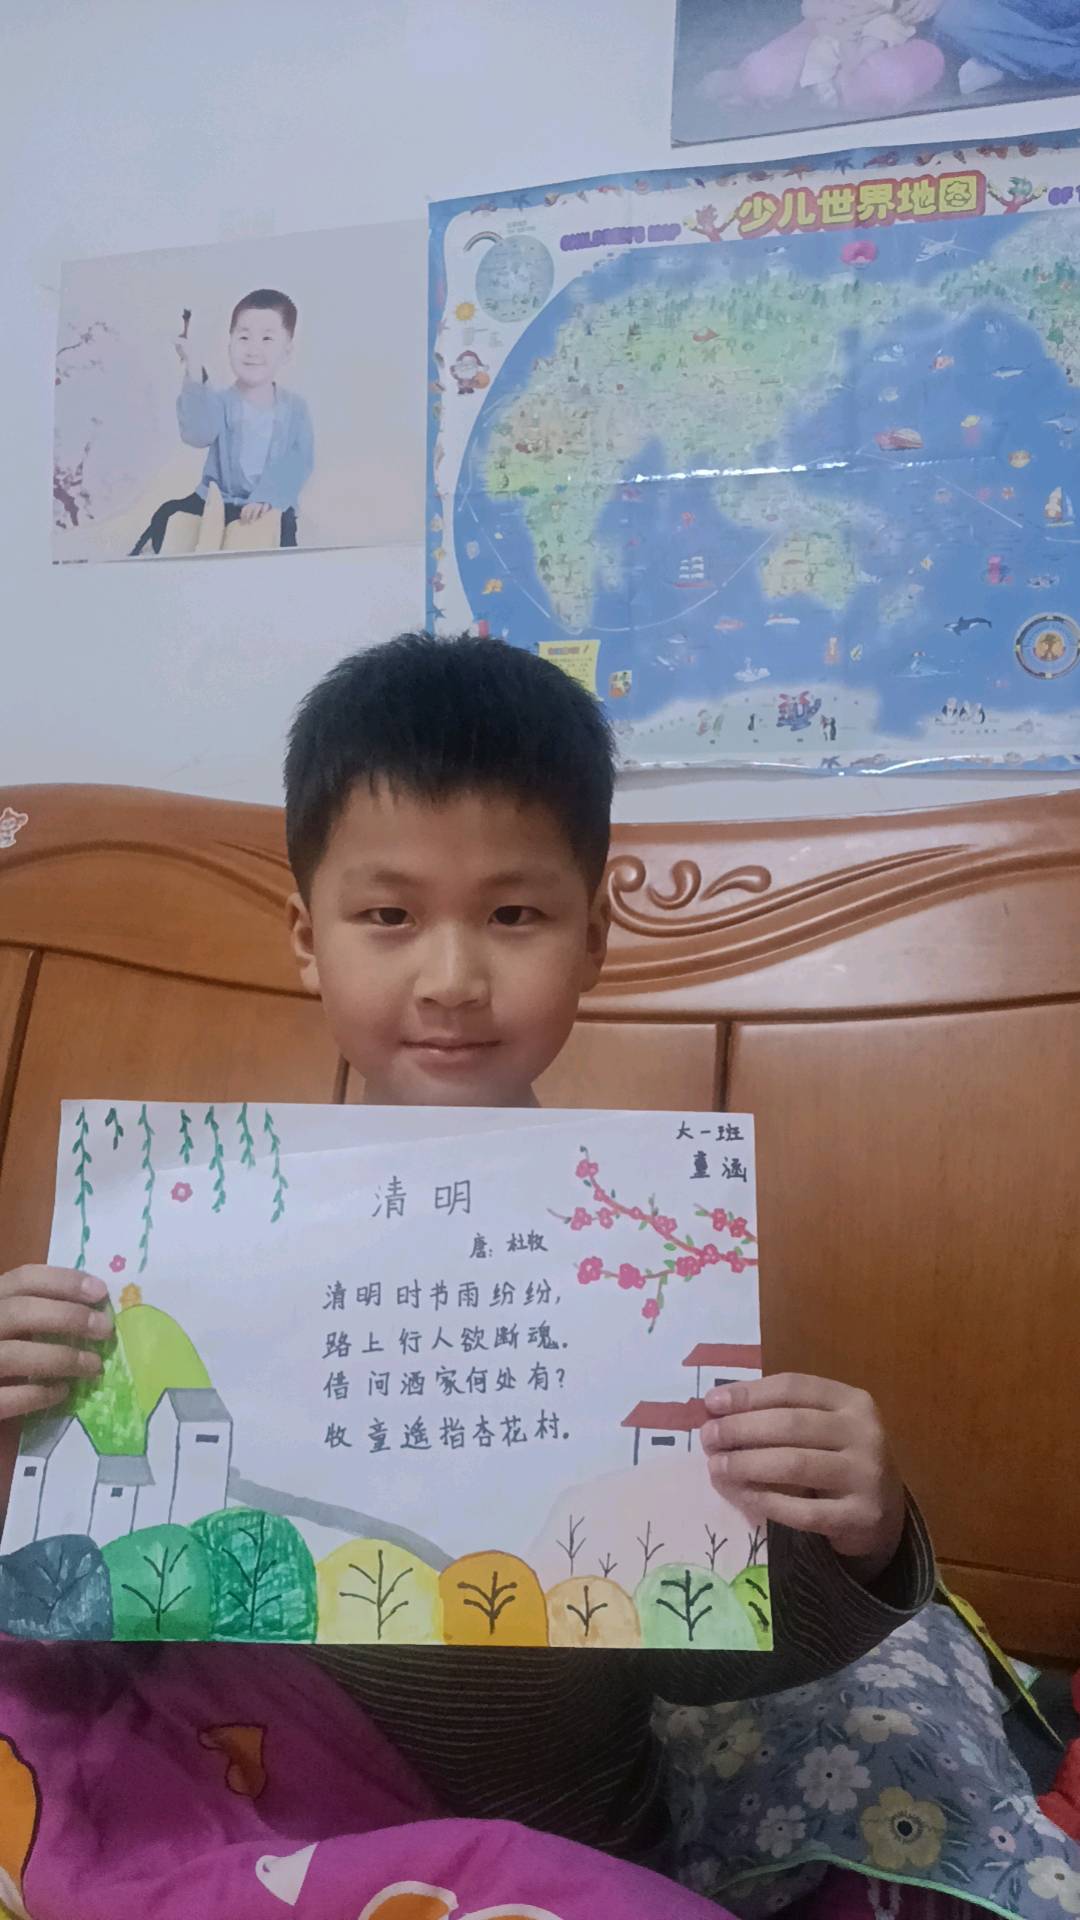 少儿世界地图
CHILDREN'S MAP
OF
大一班
童涵
清明
唐：杜牧
清明时节雨纷纷，
路上行人欲断魂。
借问酒家何处有？
牧童遥指杏花村。